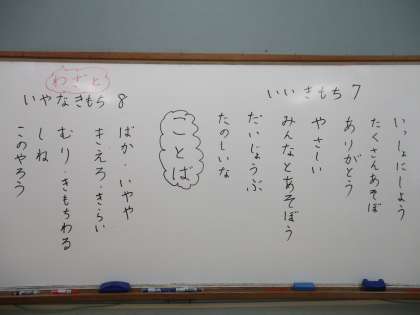 いいきもち 7
いっしょにしよう
たくさんあそぼ
ありがとう
やさしい
みんなとあそぼう
だいじょうぶ
たのしいな
ことば
わざと
いやなきもち 8
ばか・いやや
きえろ・きらい
むり・きもちわる
しね
このやろう